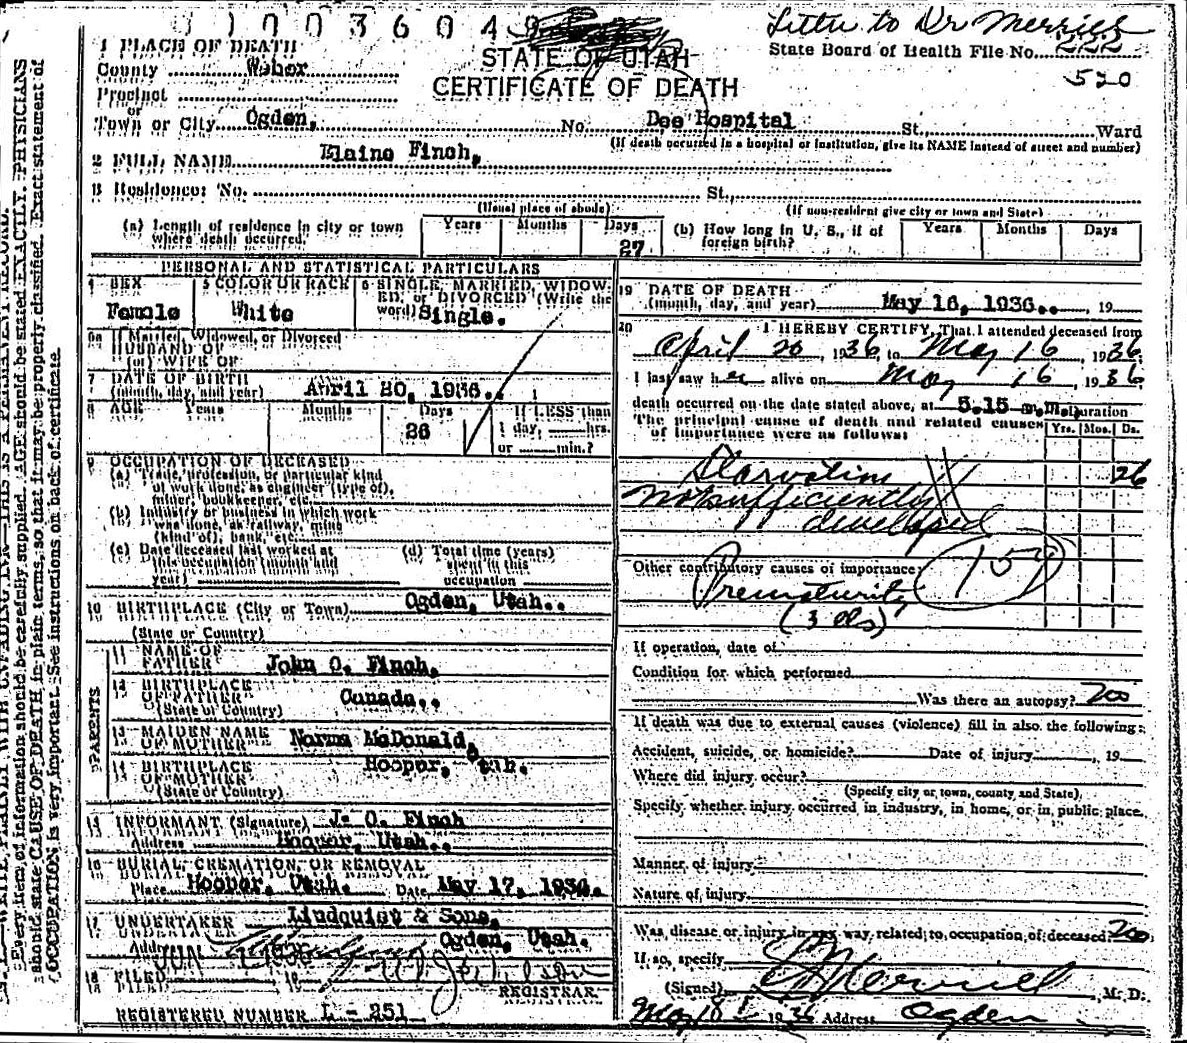 Letter to Dr Merrill
State Board of Health File No. 222
520
STATE OF UTAH
CERTIFICATE OF DEATH
1 PLACE OF DEATH
County Weber
Precinct
or
Town or City Ogden, No. Dee Hospital St., Ward
(If death occurred in a hospital or institution, give its NAME instead of street and number)
2 FULL NAME Elaine Finch,
3 Residence: No. St.,
(Usual place of abode) (If non-resident give city or town and State)
(a) Length of residence in city or town where death occurred. Years Months Days 27
(b) How long in U. S., if of foreign birth? Years Months Days
PERSONAL AND STATISTICAL PARTICULARS
4 SEX Female
5 COLOR OR RACE White
6 SINGLE, MARRIED, WIDOWED, or DIVORCED (Write the word) Single.
6a If Married, Widowed, or Divorced
HUSBAND OF
(or) WIFE OF
7 DATE OF BIRTH
(month, day, and year) April 20, 1936.
8 AGE Years Months Days 26 If LESS than 1 day, hrs. or min.?
9 OCCUPATION OF DECEASED
(a) Trade, profession, or particular kind
of work done, as engineer (type of),
miner, bookkeeper, etc.
(b) Industry or business in which work
was done, as railway, mine
(kind of), bank, etc.
(c) Date deceased last worked at
this occupation (month and
year)
(d) Total time (years)
spent in this
occupation
10 BIRTHPLACE (City or Town) Ogden, Utah..
(State or Country)
PARENTS
11 NAME OF FATHER John O. Finch,
12 BIRTHPLACE OF FATHER Canada..
(State or Country)
13 MAIDEN NAME OF MOTHER Norma McDonald,
14 BIRTHPLACE OF MOTHER Hooper, Utah.
(State or Country)
15 INFORMANT (Signature) J. O. Finch
Address Hooper, Utah.
16 BURIAL, CREMATION, OR REMOVAL
Place Hooper, Utah. Date May 17, 1936.
17 UNDERTAKER Lindquist & Sons,
Address Ogden, Utah.
18 FILED JUN 1936
REGISTRAR
REGISTERED NUMBER L - 251
19 DATE OF DEATH
(month, day, and year) May 16, 1936.. , 19
20 I HEREBY CERTIFY, That I attended deceased from
April 20, 1936 to May 16, 1936.
I last saw her alive on May 16, 1936
death occurred on the date stated above, at 5.15 m. Duration
The principal cause of death and related causes
of importance were as follows: Yrs. Mos. Ds.
Starvation 26
not sufficiently
developed
Other contributory causes of importance:
Prematurity
(3 lbs)
If operation, date of
Condition for which performed
Was there an autopsy? no
If death was due to external causes (violence) fill in also the following:
Accident, suicide, or homicide? Date of injury , 19
Where did injury occur?
(Specify city or town, county and State)
Specify whether injury occurred in industry, in home, or in public place.
Manner of injury
Nature of injury
Was disease or injury in any way related to occupation of deceased? no
If so, specify
(Signed) Merrill M. D.
May 18 1936 Address Ogden
Every item of information should be carefully supplied. AGE should be stated EXACTLY. PHYSICIANS
should state CAUSE OF DEATH in plain terms, so that it may be properly classified. Exact statement of
OCCUPATION is very important. See instructions on back of certificate.